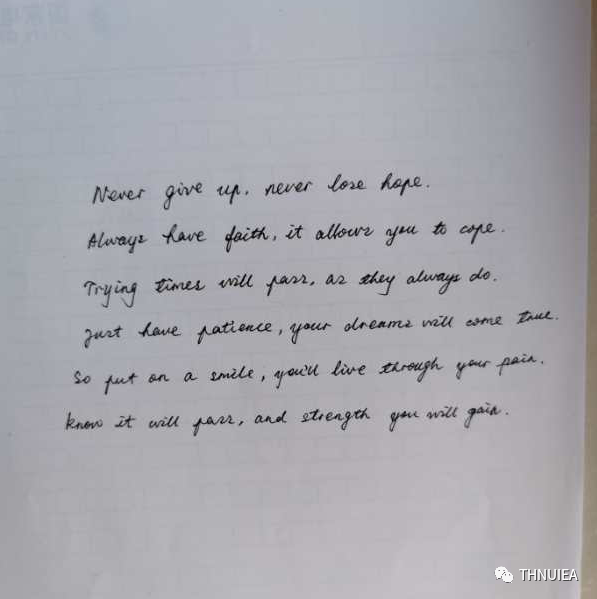 Never give up, never lose hope.
Always have faith, it allows you to cope.
Trying times will pass, as they always do.
Just have patience, your dreams will come true.
So put on a smile, you'll live through your pain.
Know it will pass, and strength you will gain.
THNUIEA